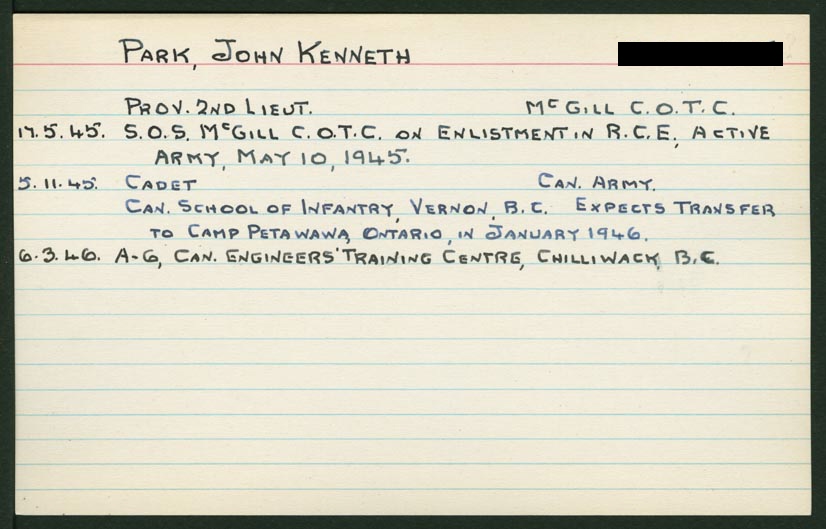 PARK, JOHN KENNETH
PROV. 2ND LIEUT. McGILL C.O.T.C.
17.5.45. S.O.S. McGILL C.O.T.C. ON ENLISTMENT IN R.C.E., ACTIVE
ARMY, MAY 10, 1945.
5.11.45. CADET CAN. ARMY.
CAN. SCHOOL OF INFANTRY, VERNON, B.C. EXPECTS TRANSFER
TO CAMP PETAWAWA, ONTARIO, IN JANUARY 1946.
6.3.46. A-6, CAN. ENGINEERS' TRAINING CENTRE, CHILLIWACK, B.C.